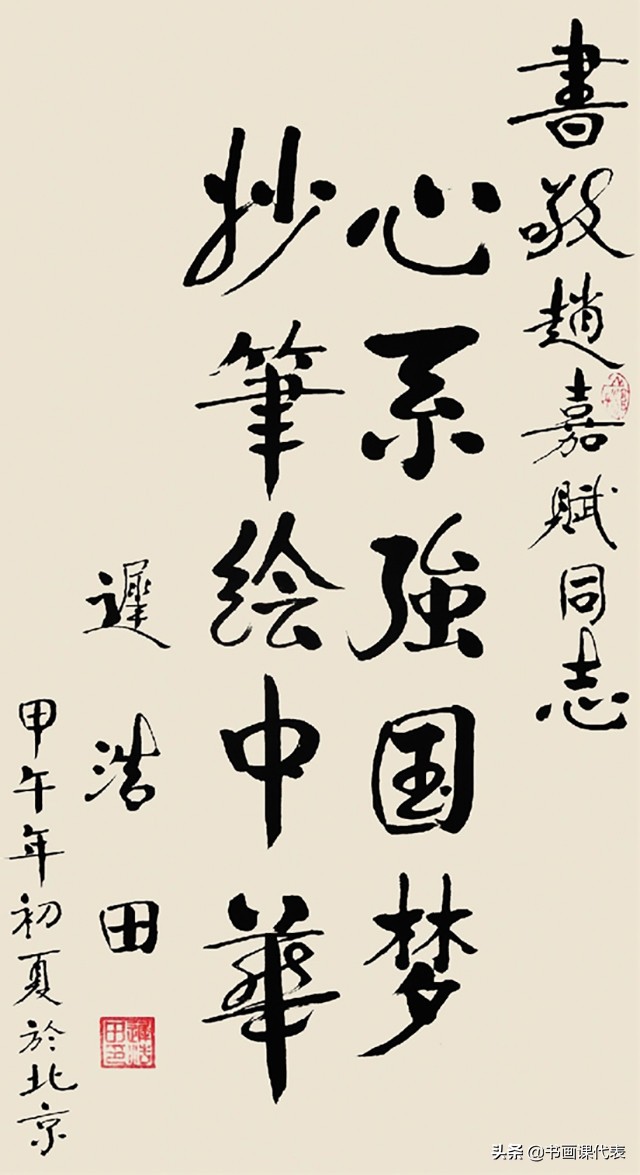 書敬趙嘉賦同志
心系強国梦
妙筆绘中華
遲浩田
甲午年初夏於北京
遲浩田印
头条 @书画课代表